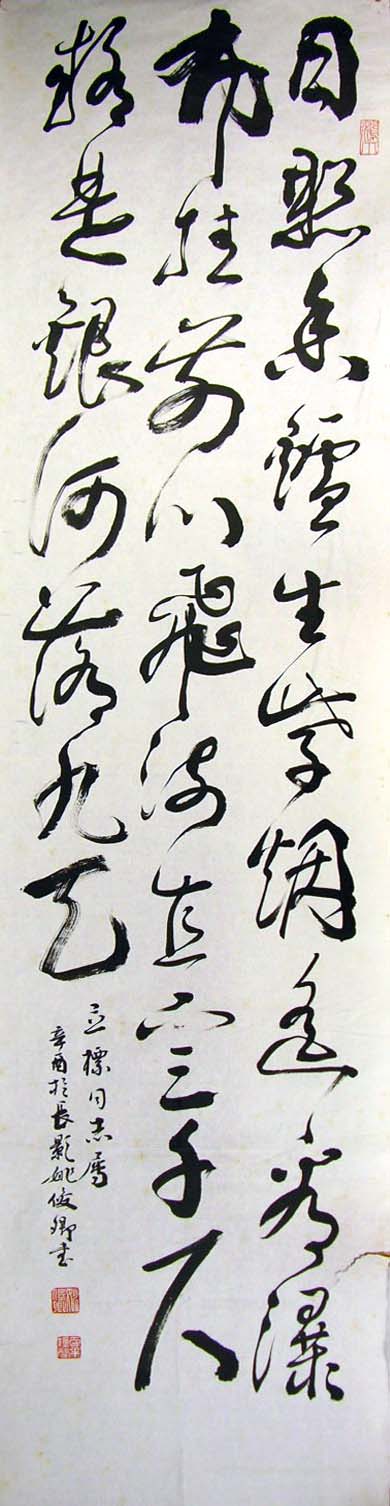 日照香鑪生紫烟遥看瀑
布挂前川飛流直下三千尺
疑是銀河落九天
立標同志属
辛酉於長影姚俊卿书